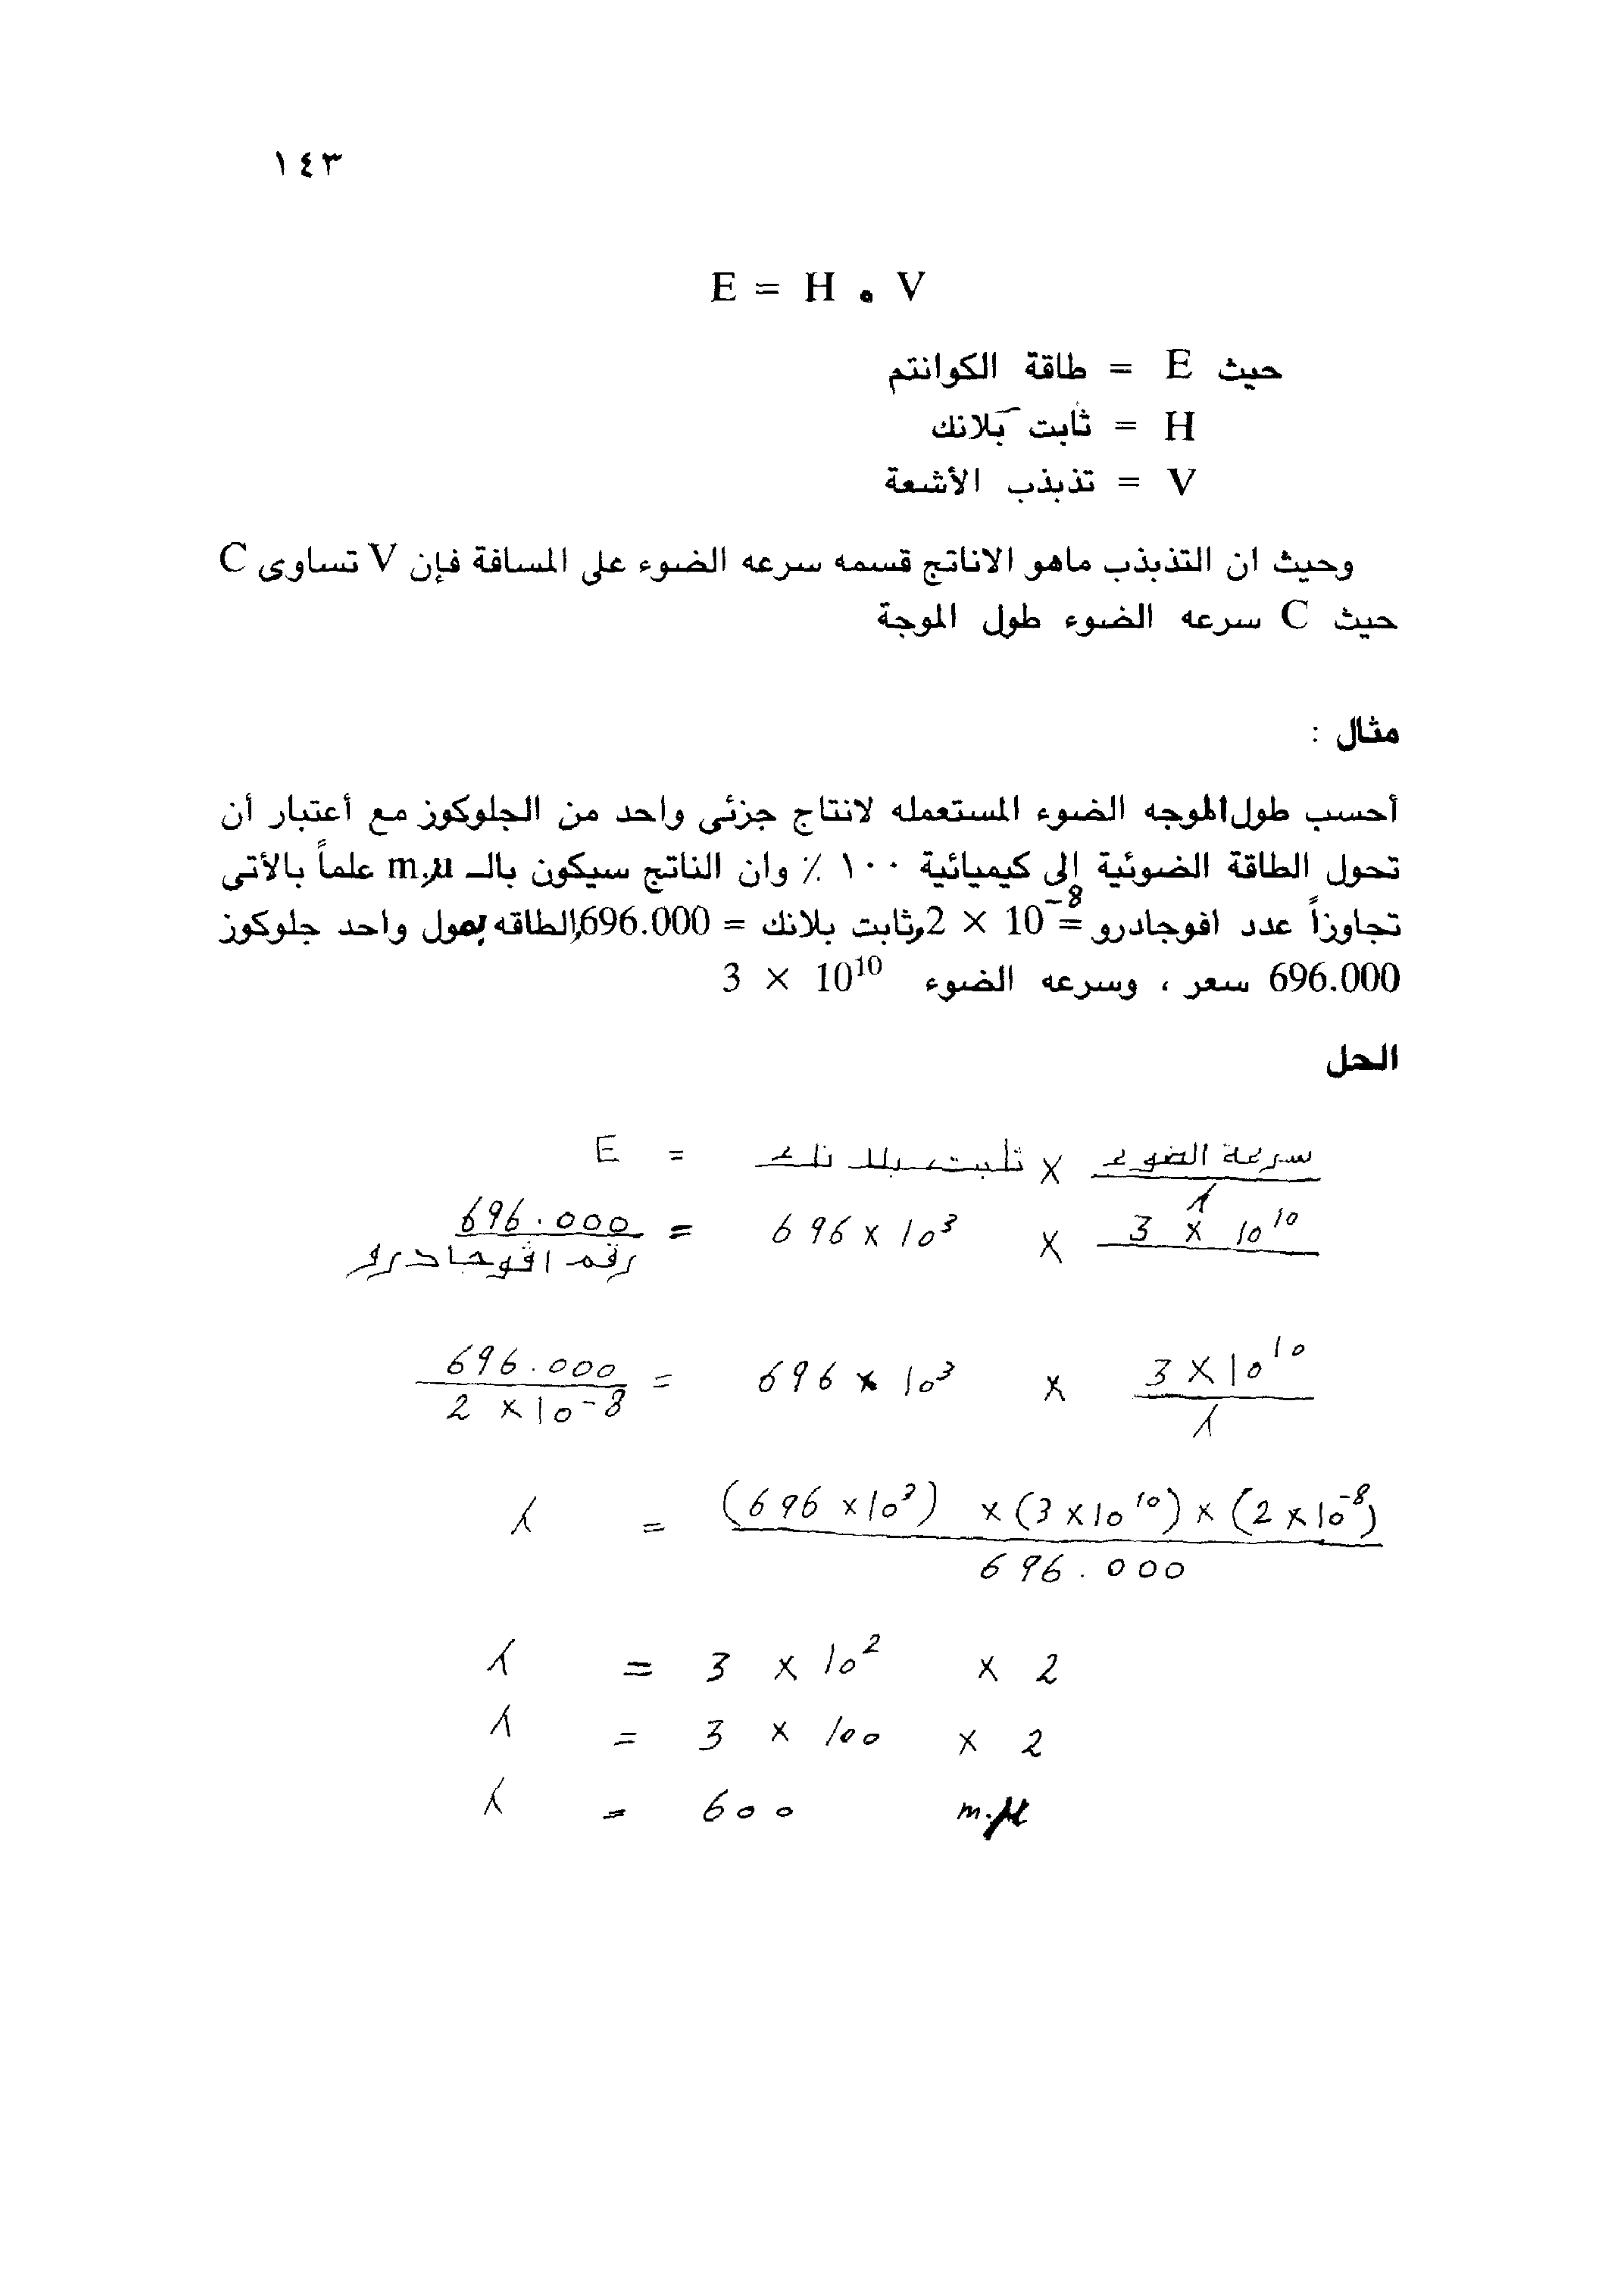 ١٤٣
E = H . V
حيث E = طاقة الكوانتم
H = ثابت بلانك
V = تذبذب الأشعة
وحيث ان التذبذب ماهو الاناتج قسمه سرعه الضوء على المسافة فإن V تساوى C
حيث C سرعه الضوء طول الموجة
مثال :
أحسب طول الموجه الضوء المستعمله لانتاج جزئى واحد من الجلوكوز مع أعتبار أن
تحول الطاقة الضوئية إلى كيميائية ١٠٠ ٪ وان الناتج سيكون بالـ m.μ علماً بالأتى
تجاوزاً عدد افوجادرو = 2 × 10⁻⁸، وثابت بلانك = 696.000، الطاقه بمول واحد جلوكوز
696.000 سعر ، وسرعه الضوء 3 × 10¹⁰
الحل
E = ثابت بلانك × سرعة الضوء / λ
696.000 / رقم افوجادرو = 696 × 10³ × 3 × 10¹⁰
696.000 / 2 × 10⁻⁸ = 696 × 10³ × 3 × 10¹⁰ / λ
λ = (696 × 10³) × (3 × 10¹⁰) × (2 × 10⁻⁸) / 696.000
λ = 3 × 10² × 2
λ = 3 × 100 × 2
λ = 600 m.μ